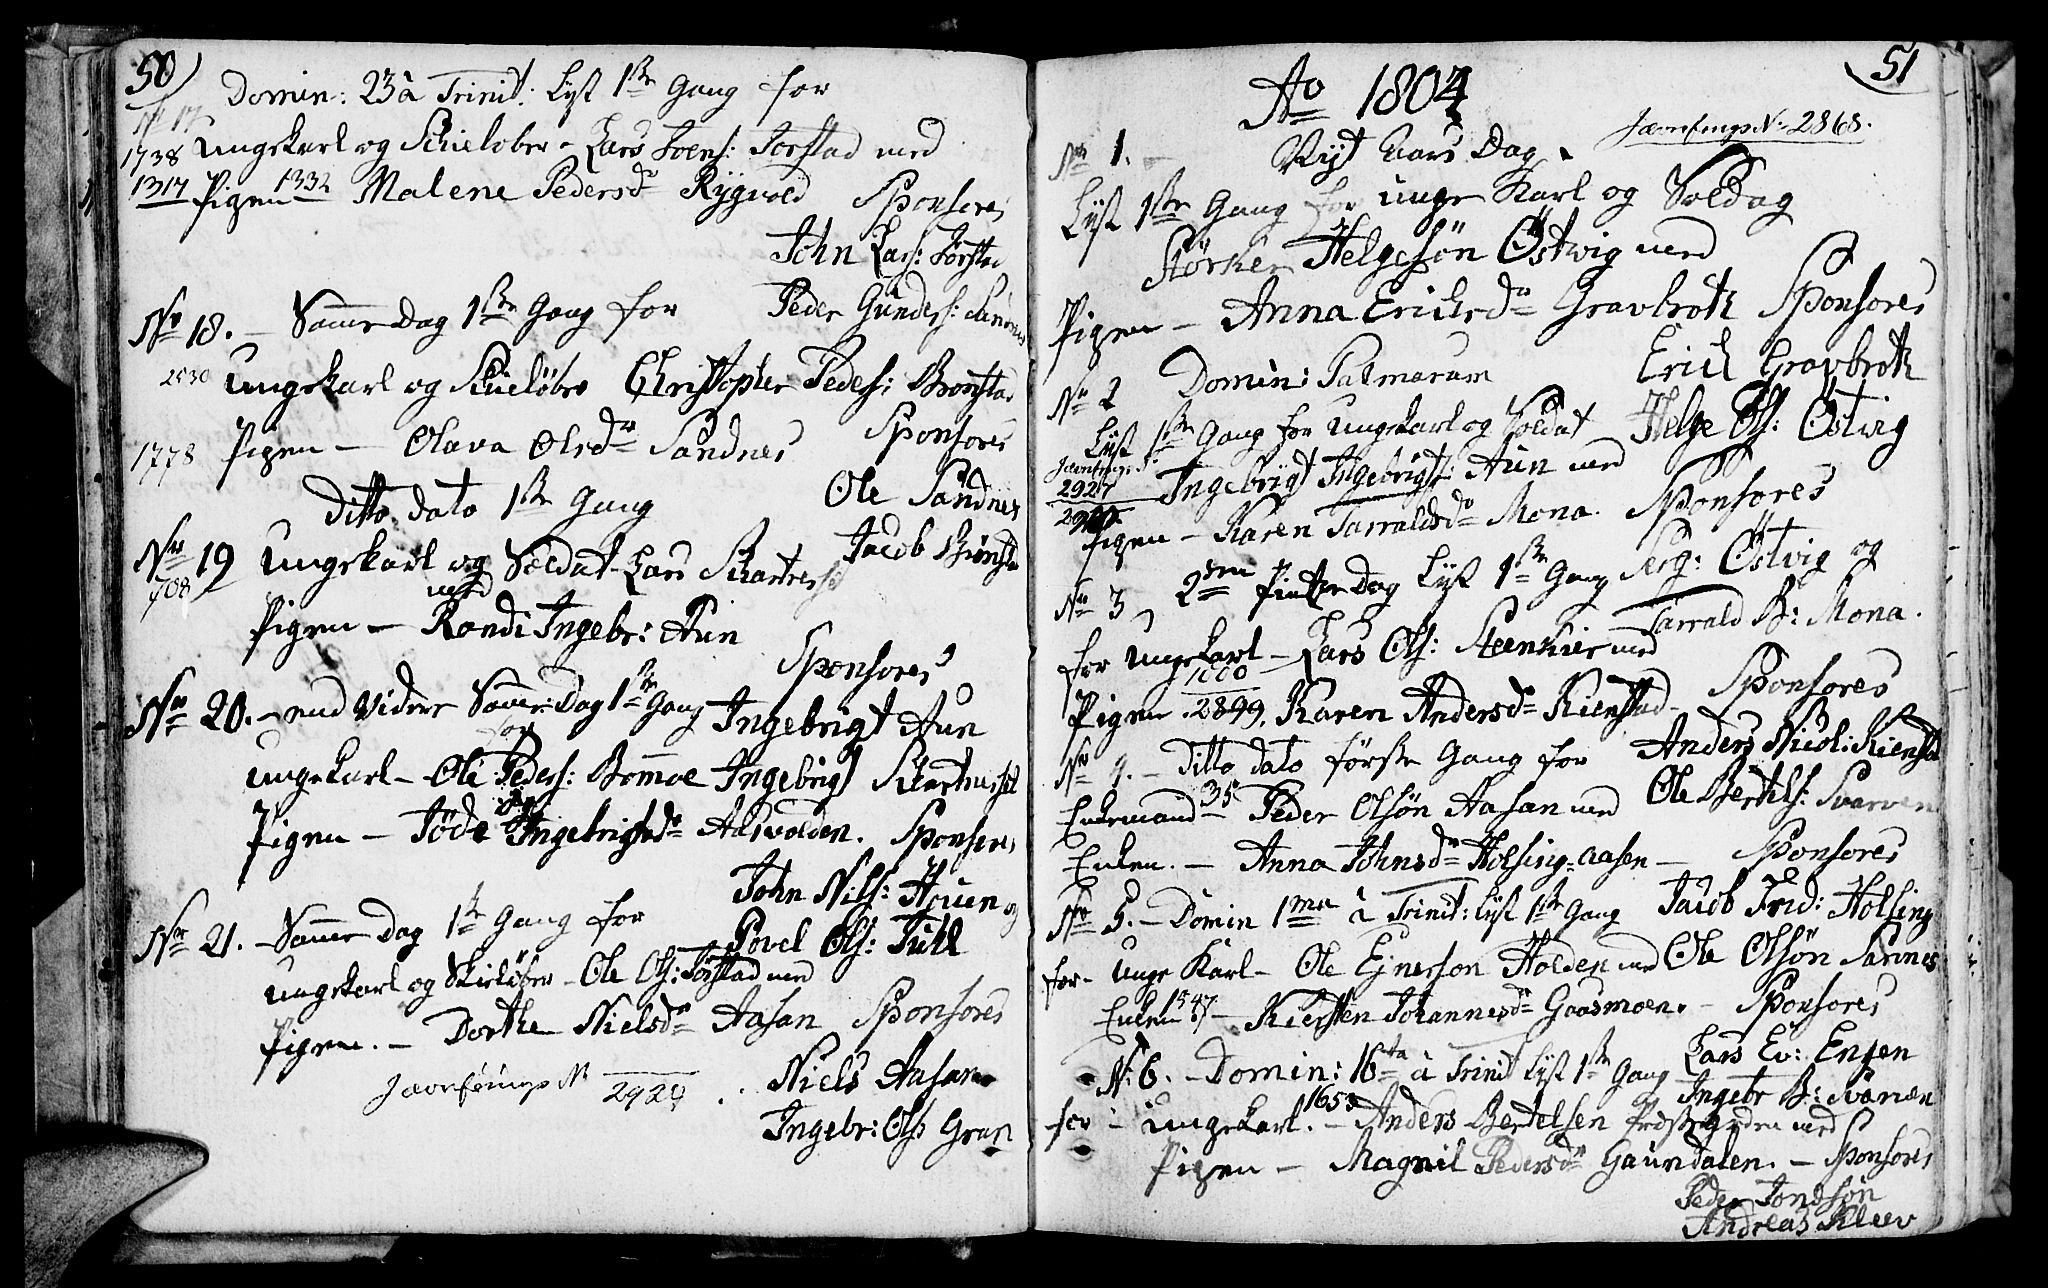 50)
Domin: 23 à Trinit: Lyst 1ste Gang for
No 17
1738 Ungekarl og Skieløber - Lars Joens: Torstad med
1317 Pigen 1332 Malene Pedersdr Rygvold Sponsores
John Lars: Torstad
Peder Gunders: Sandnes
No 18. - Samme Dag 1ste Gang for
2530 Ungekarl og Skieløber Christopher Peders: Brørstad
1778 Pigen - Olava Olsdr Sandnes Sponsores
Ole Sandnes
Jacob Brørstad
Ditto dato 1ste Gang
No 19 Ungekarl og Soldat Lars
708 med
Pigen - Randi Ingebr: Aun
Sponsores
No 20. - end Videre Samme Dag 1ste Gang Ingebrigt Aun
for
Ungekarl - Ole Peders: Bomoe Ingebrigt
Pigen - Jøde Ingebrigtsdr Aasvolden. Sponsores
John Nils: Houen og
Povel Ols: Tull
No 21. - Samme Dag 1ste Gang for
Ungekarl og Skieløber - Ole Ols: Torstad med
Pigen. - Dorthe Nielsdr Aasan Sponsores
Niels Aasan
Ingebr: Ols Gran
Jævnførings No 2924
51
Ao 1804
Jævnførings No 2868.
No 1. Nyt Aars Dag.
Lyst 1ste Gang for unge Karl og Soldat
Størker Helgesøn Østwig med
Pigen - Anna Ericksdr Gravbrøtt Sponsores
Erich Gravbrøtt
Helge Ols: Østvig
No 2 Domin: Palmarum
Lyst 1ste Gang for Ungekarl og Soldat
Jævnførings No
2927 Ingebrigt Ingebrigts: Aun med
Pigen - Karen Tarraldsdr Mona. Sponsores
Serg: Østvig og
Tarrald B: Mona.
No 3, 2den Pintze Dag Lyst 1ste Gang
for Ungekarl - Lars Ols: Steenkier med
Pigen 2899. Karen Andersdr Kienstad - Sponsores
Anders Nicol: Kienstad
Ole Bertels: Svarven
No 4. - Ditto dato første Gang for
Enkemand 35 - Peder Olsøn Aasan med
Enken. - Anna Johnsdr Holsing-aasen - Sponsores
Jacob Frid: Holsing
Ole Olsøn Sannes
No 5. - Domin 1ma à Trinit: Lyst 1ste Gang
for - Unge Karl - Ole Ejnerson Holden med
Enken 1547 - Kiersten Johannesdr Gaasmoen. - Sponsores
Lars Ev: Engen
Ingebr B: Svarven
No 6. - Domin: 16ta à Trinit Lyst 1ste Gang
for - Ungekarl. 1653 - Anders Bertelsen Præstegrden med
Pigen - Magnil Pedersdr Gaundalen. - Sponsores
Peder Jondsøn
Andreas Kleev